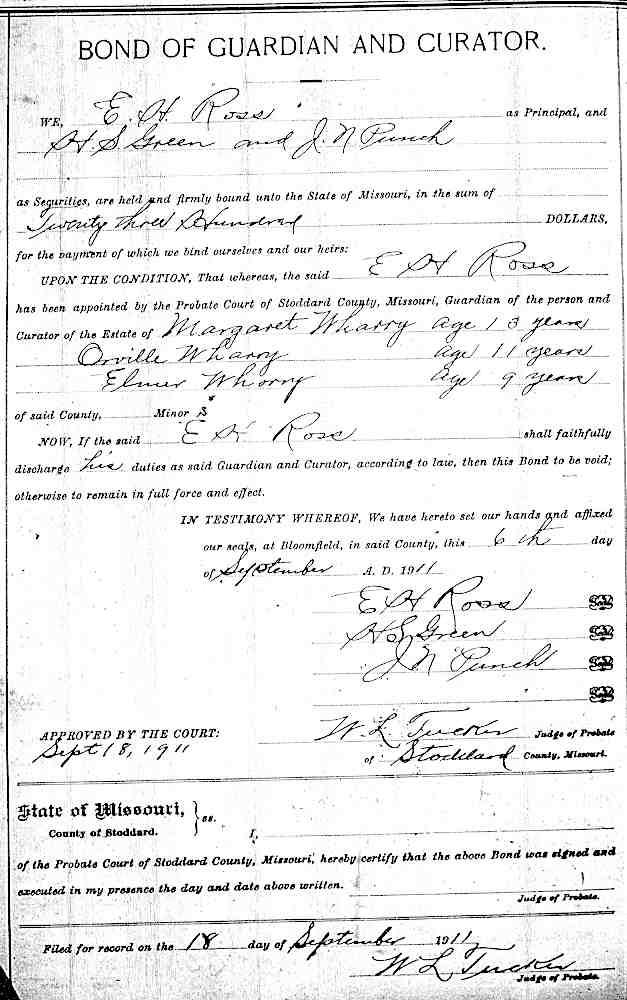 BOND OF GUARDIAN AND CURATOR.
WE, E. H. Ross as Principal, and
H. S. Green and J. N. Punch
as Segurities, are held and firmly bound unto the State of Missouri, in the sum of
Twenty three Hundred DOLLARS,
for the payment of which we bind ourselves and our heirs:
UPON THE CONDITION, That whereas, the said E H Ross
has been appointed by the Probate Court of Stoddard County, Missouri, Guardian of the person and
Curator of the Estate of Margaret Wharry age 13 years
Orville Wharry age 11 years
Elmer Whorry age 9 years
of said County, Minor s
NOW, If the said E H Ross shall faithfully
discharge his duties as said Guardian and Curator, according to law, then this Bond to be void;
otherwise to remain in full force and effect.
IN TESTIMONY WHEREOF, We have hereto set our hands and affixed
our seals, at Bloomfield, in said County, this 6th day
of September A. D. 1911
E H Ross
H S Green
J N Punch
APPROVED BY THE COURT: W. L. Tucker Judge of Probate
Sept 18, 1911 of Stoddard County, Missouri.
State of Missouri, } ss.
County of Stoddard. I,
of the Probate Court of Stoddard County, Missouri, hereby certify that the above Bond was signed and
executed in my presence the day and date above written.
Judge of Probate.
Filed for record on the 18 day of September 1911
W L Tucker
Judge of Probate.